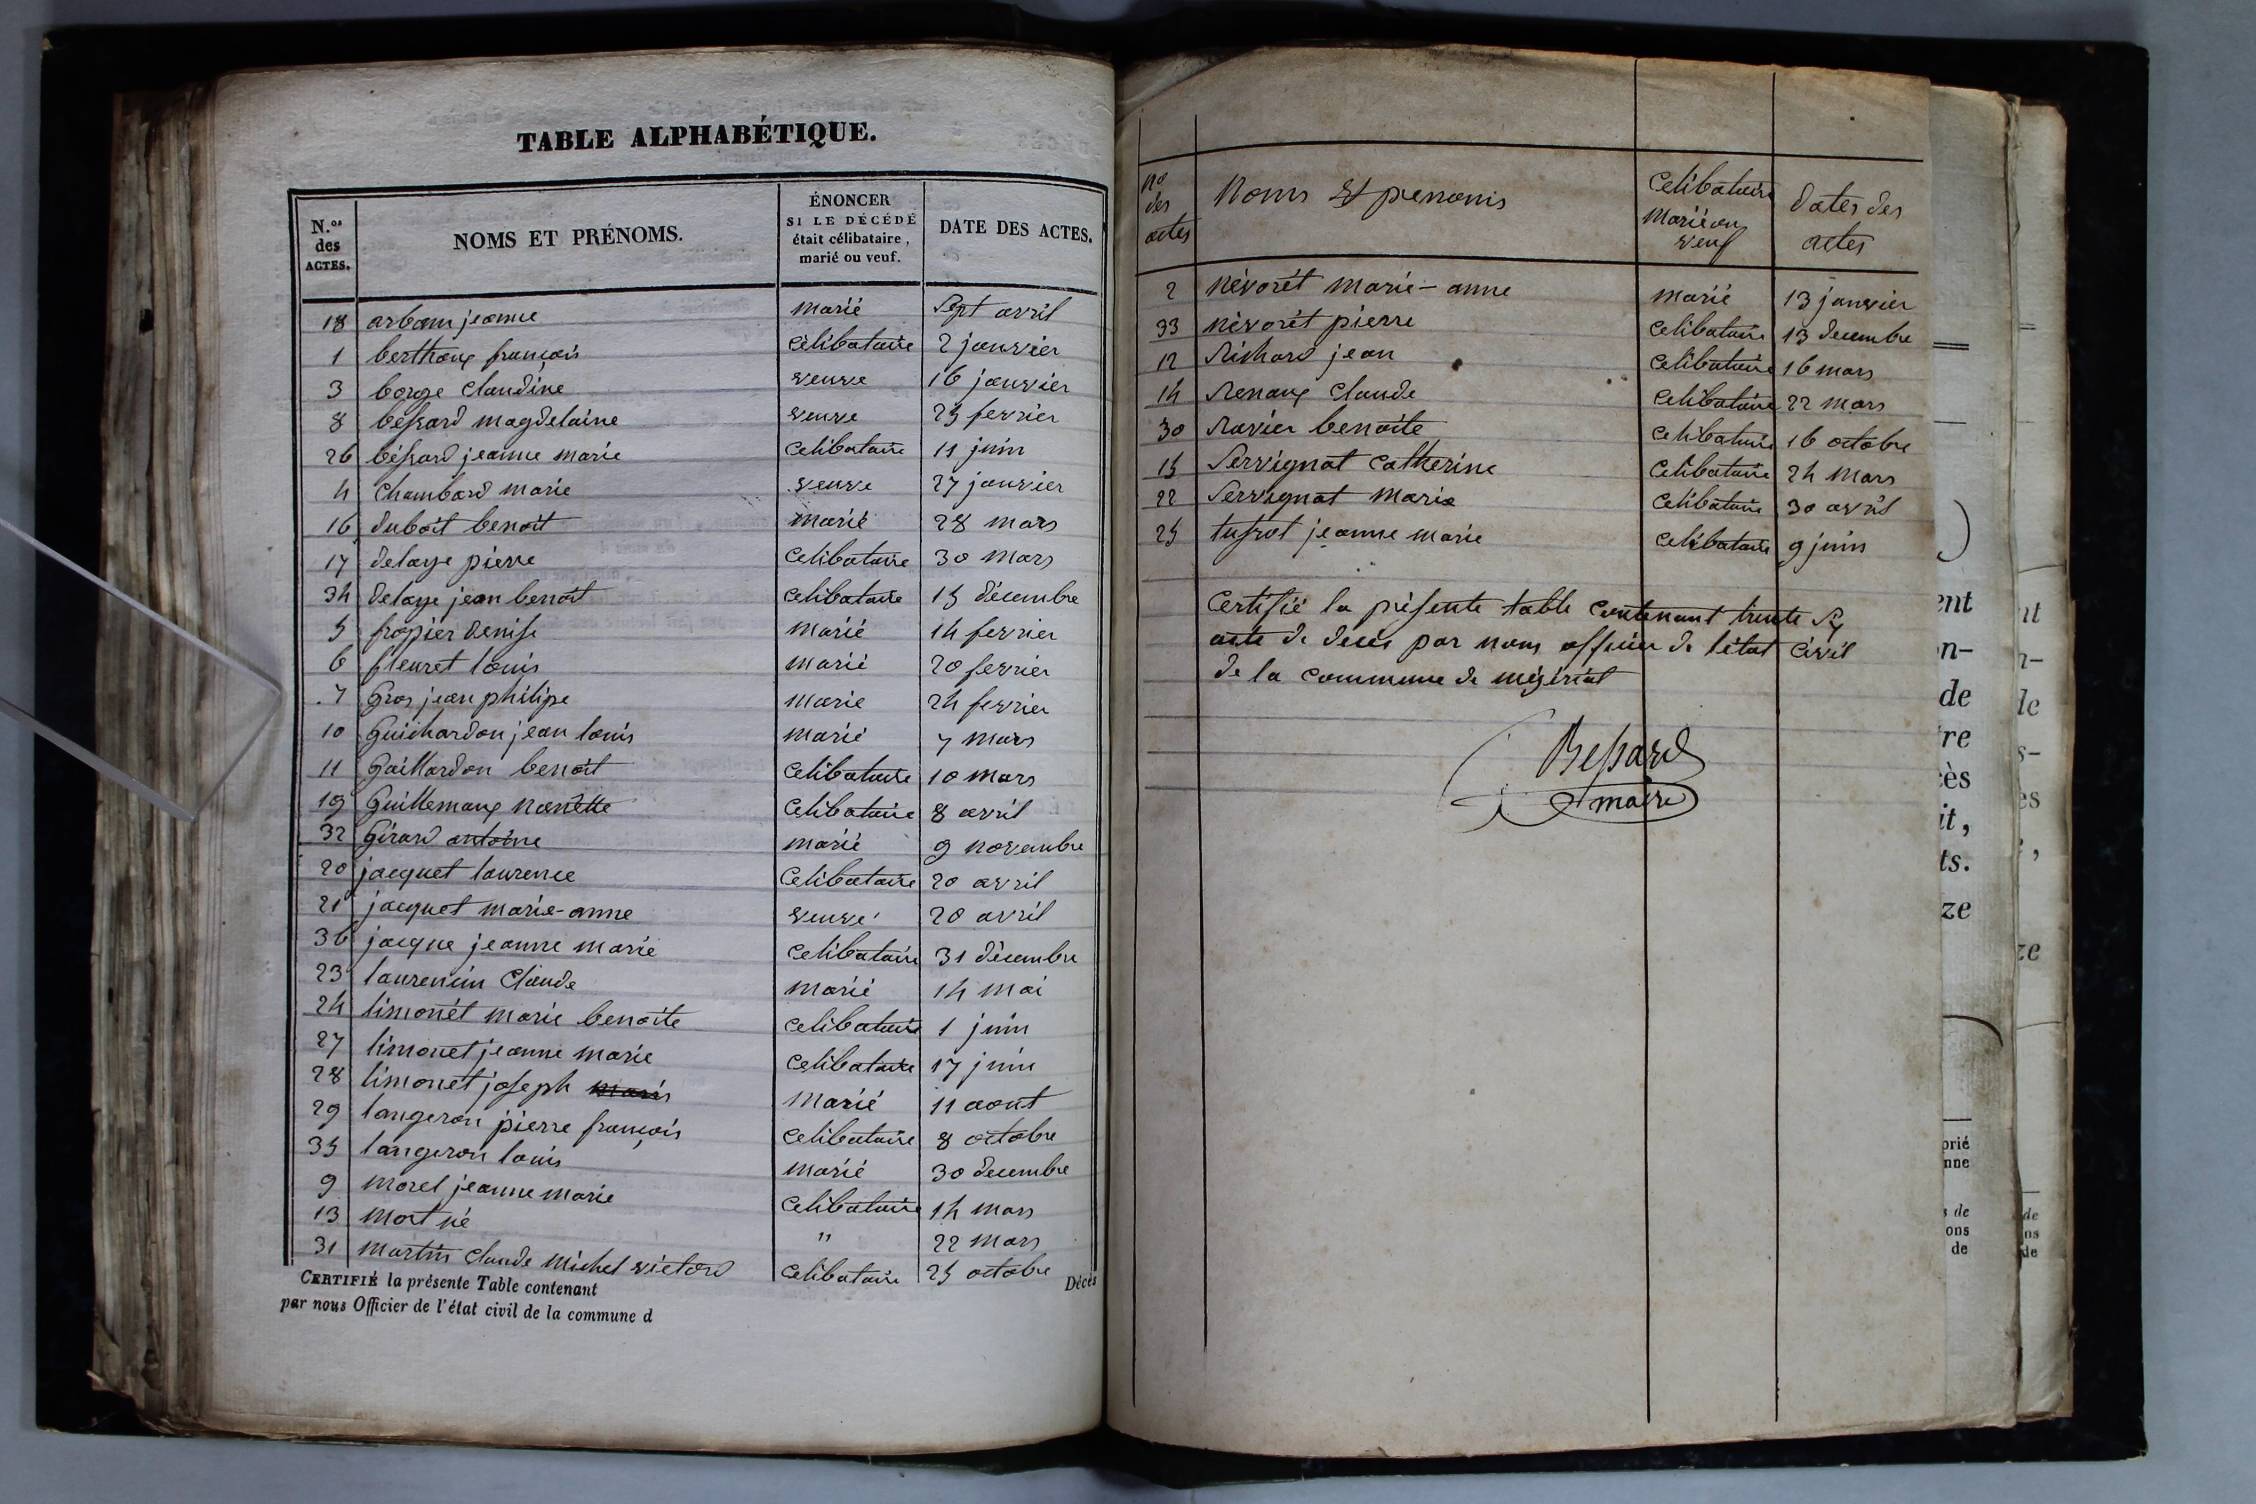 TABLE ALPHABÉTIQUE.
N.os des ACTES.
NOMS ET PRÉNOMS.
ÉNONCER SI LE DÉCÉDÉ était célibataire, marié ou veuf.
DATE DES ACTES.
18 arbom jeanne marié Sept avril
1 berthoux françois célibataire 2 janvier
3 borge Claudine veuve 16 janvier
8 béssard magdelaine veuve 25 fevrier
26 béssard jeanne marie celibataire 11 juin
4 Chambard marie veuve 27 janvier
16 duboit benoit marié 28 mars
17 delaye pierre celibataire 30 mars
34 delaye jean benoit celibataire 15 décembre
5 denise marié 14 fevrier
6 fleuret louis marié 20 fevrier
7 Gros jean philipe marie 24 fevrier
10 Guichardon jean louis marié 7 mars
11 Gaillardon benoit celibataire 10 mars
19 Guillemaux nanette celibataire 8 avril
32 Girard antoine marié 9 novembre
20 jacquet laurence celibataire 20 avril
21 jacquet marie-anne veuve 20 avril
36 jacque jeanne marie celibataire 31 décembre
23 laurencin Claude marié 14 mai
24 limonét marie benoite celibataire 1 juin
27 limonet jeanne marie celibataire 17 juin
28 limonet joseph marié 11 aout
29 langeron pierre françois celibataire 8 octobre
35 langeron louis marié 30 decembre
9 morel jeanne marie celibataire 14 mars
13 mort né " 22 mars
31 martin Claude Michel victord celibataire 25 octobre
CERTIFIÉ la présente Table contenant Décès
par nous Officier de l'état civil de la commune d
no des actes
Noms Et prenoms
Celibataire Marié ou veuf
dates des actes
2 névorét marie-anne marié 13 janvier
33 névorét pierre celibataire 13 decembre
12 Richard jean celibataire 16 mars
14 Renoux Claude Celibataire 22 mars
30 Ravier benoite celibataire 16 octobre
15 Servignat Catherine celibataire 24 mars
22 Servignat Marie celibataire 30 avril
25 jeanne marie celibataire 9 juin
Certifié la présente table contenant trente Six
acte de deces par nous officier de l'état Civil
de la Commune de mézériat
Bessard
maire